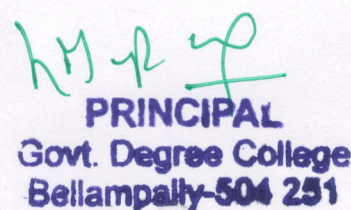 PRINCIPAL
Govt. Degree College
Bellampally-504 251